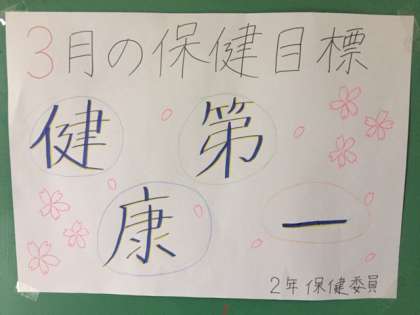 3月の保健目標
健康
第一
2年 保健委員